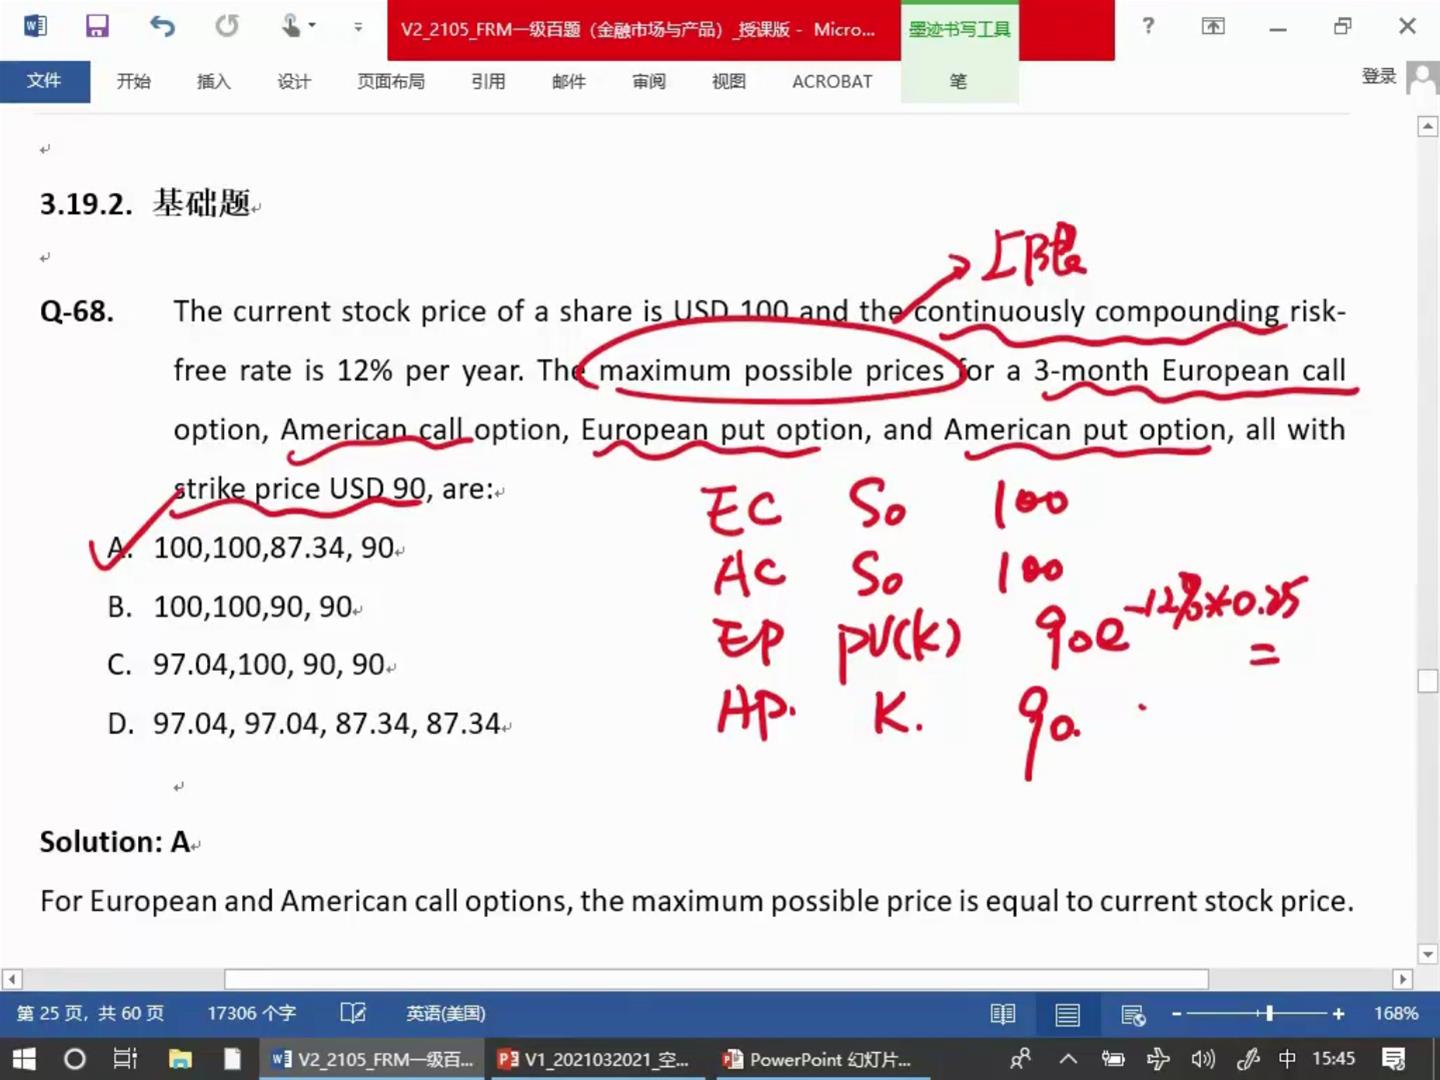 V2_2105_FRM一级百题（金融市场与产品）_授课版 - Micro...
墨迹书写工具
?
文件 开始 插入 设计 页面布局 引用 邮件 审阅 视图 ACROBAT 笔 登录
3.19.2. 基础题
上限
Q-68. The current stock price of a share is USD 100 and the continuously compounding risk-
free rate is 12% per year. The maximum possible prices for a 3-month European call
option, American call option, European put option, and American put option, all with
strike price USD 90, are:
EC S₀ 100
A. 100,100,87.34, 90
AC S₀ 100
B. 100,100,90, 90
EP PV(K) 90e^-12%*0.25 =
C. 97.04,100, 90, 90
AP. K. 90.
D. 97.04, 97.04, 87.34, 87.34
Solution: A
For European and American call options, the maximum possible price is equal to current stock price.
第 25 页，共 60 页 17306 个字 英语(美国) 168%
V2_2105_FRM一级百... V1_2021032021_空... PowerPoint 幻灯片... 中 15:45